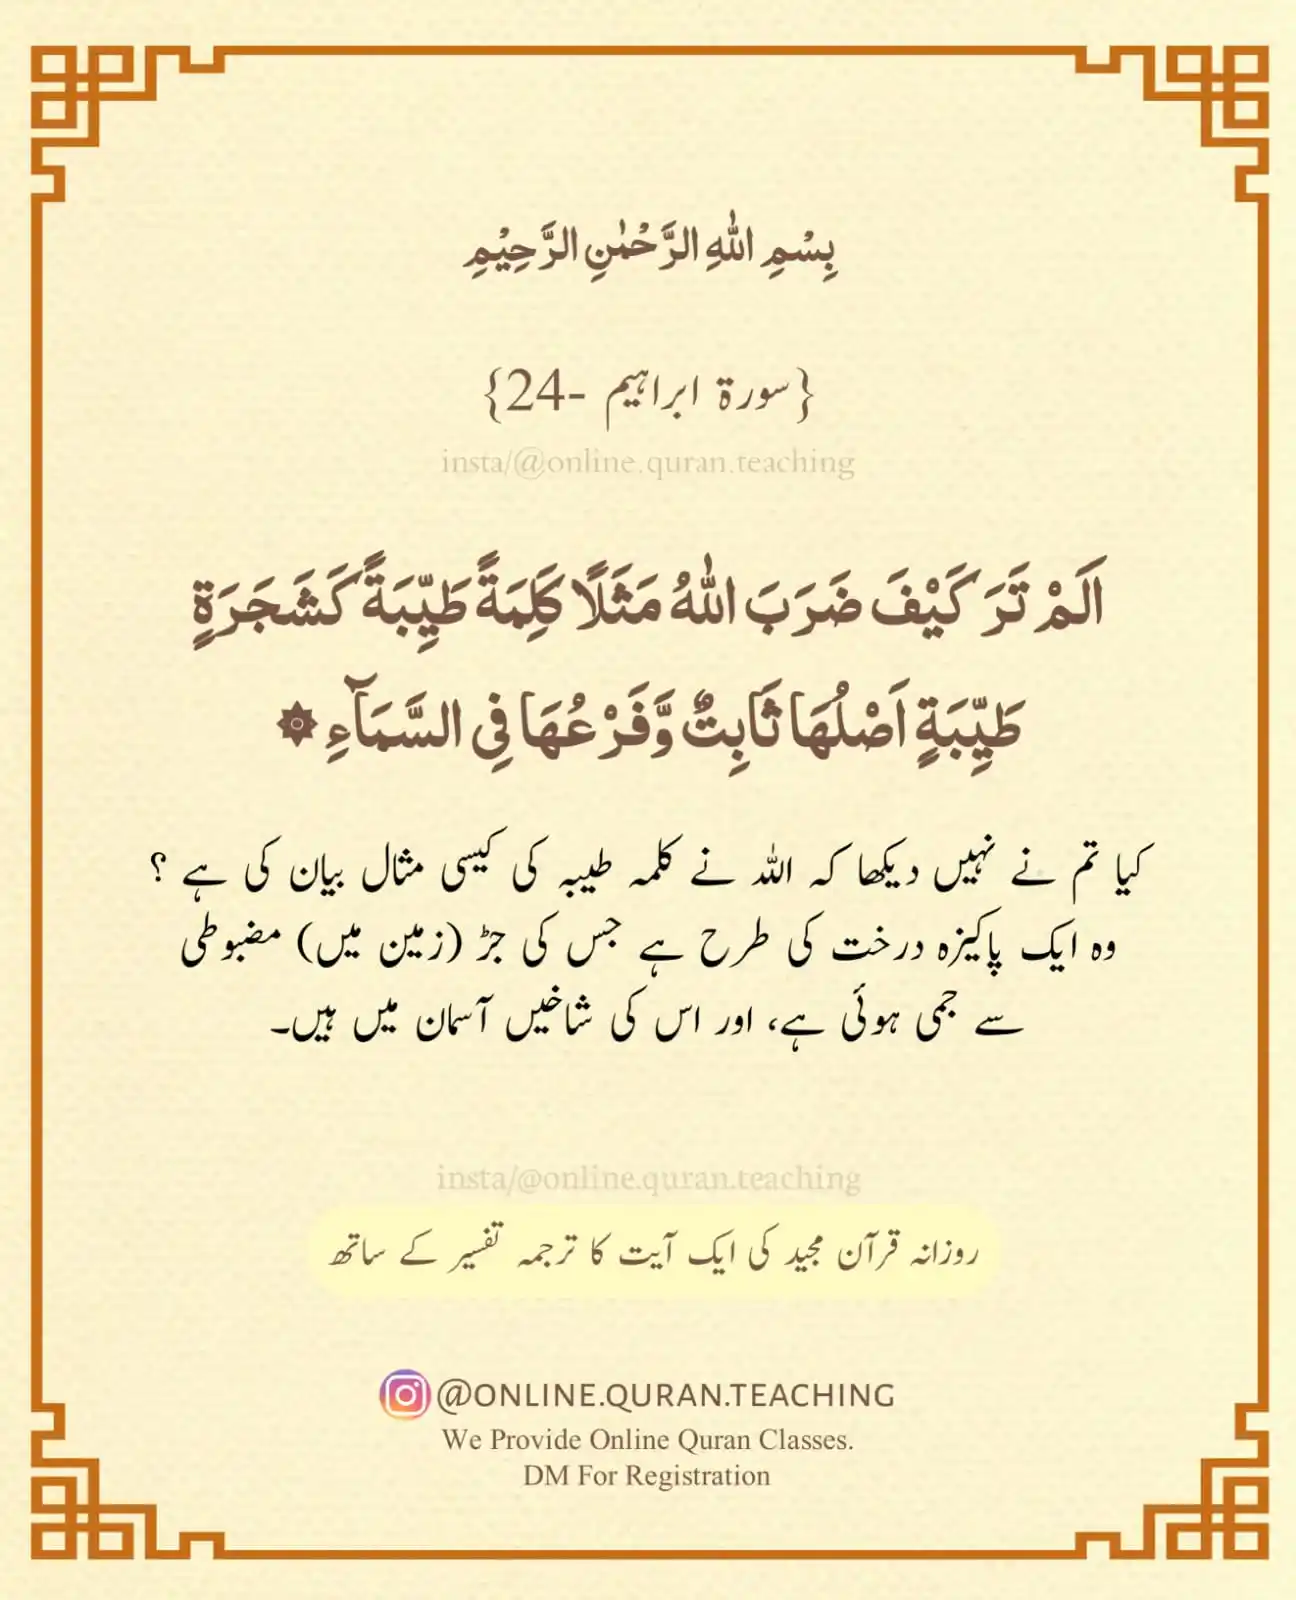 بِسْمِ اللّٰهِ الرَّحْمٰنِ الرَّحِیْمِ
{سورۃ ابراہیم -24}
insta/@online.quran.teaching
اَلَمْ تَرَ كَیْفَ ضَرَبَ اللّٰهُ مَثَلًا كَلِمَةً طَیِّبَةً كَشَجَرَةٍ
طَیِّبَةٍ اَصْلُهَا ثَابِتٌ وَّفَرْعُهَا فِی السَّمَآءِ ۞
کیا تم نے نہیں دیکھا کہ اللہ نے کلمہ طیبہ کی کیسی مثال بیان کی ہے ؟
وہ ایک پاکیزہ درخت کی طرح ہے جس کی جڑ (زمین میں) مضبوطی
سے جمی ہوئی ہے، اور اس کی شاخیں آسمان میں ہیں۔
insta/@online.quran.teaching
روزانہ قرآن مجید کی ایک آیت کا ترجمہ تفسیر کے ساتھ
@ONLINE.QURAN.TEACHING
We Provide Online Quran Classes.
DM For Registration